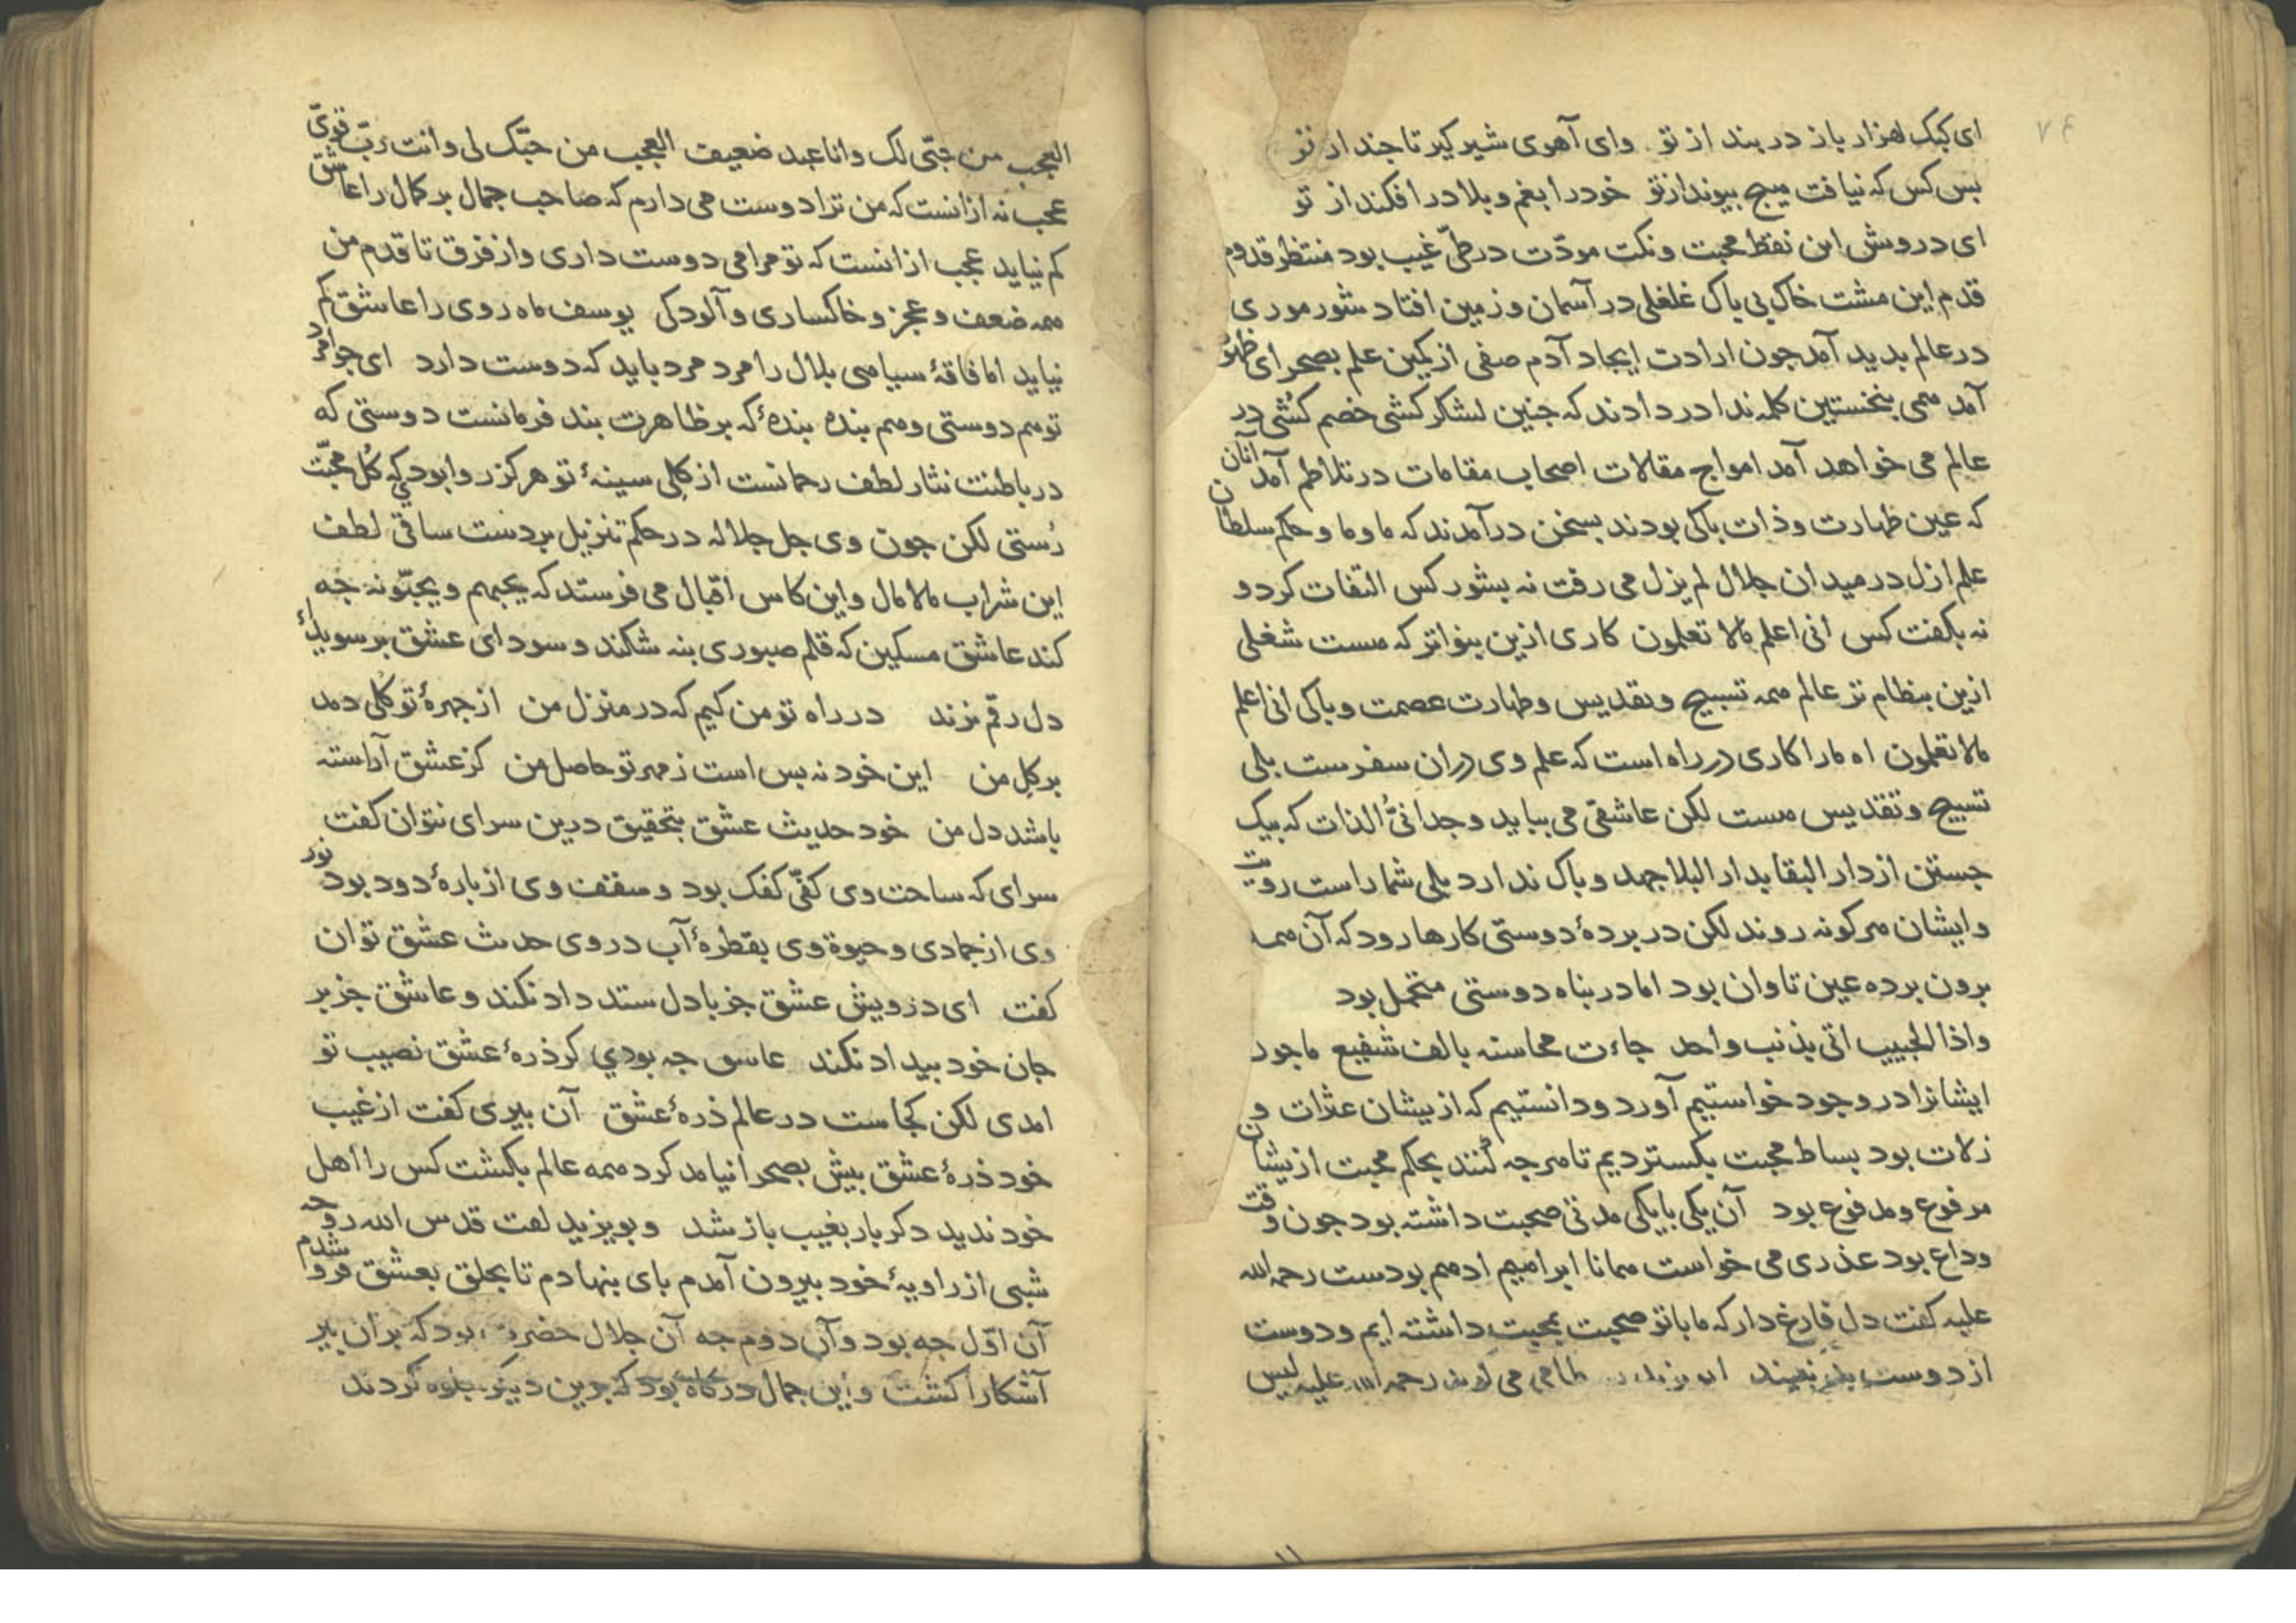 ۷۴
ای کبک هزار باز در بند از تو وای آهوی شیر کیر تا جند از تو
بس کس که نیافت میج بیوند از تو خود را بغم و بلا در افکند از تو
ای درویش این نقط محبت و نکت مودّت در طیّ غیب بود منتظر قدوم
قدم این مشت خاک بی باک غلغلی در آسمان و زمین افتاد شور موری
در عالم بدید آمد جون ارادت ایجاد آدم صفی از کمین علم بصحرای ظهور
آمد ممی بنخستین کلمه ندا در دادند که جنین لشکر کشی خصم کُشی در
عالم می خواهد آمد امواج مقالات اصحاب مقامات در تلاطم آمد آنان
که عین طهارت و ذات باکی بودند بسخن درآمدند که ما و ما و حکم سلطان
علم ازل در میدان جلال لم یزل می رفت نه بشور کس التفات کرد و
نه بکفت کس انی اعلم مالا تعلمون کاری ازین بنواتر که مست شغلی
ازین بنظام تر عالم ممه تسبیح و تقدیس و طهارت عصمت و باکی انی اعلم
مالا تعلمون اه مارا کاری در راه است که علم وی دران سفرست بلی
تسبیح و تقدیس مست لکن عاشقی می بباید وجدانیُّ الذات که بیک
جستن از دار البقا بدار البلا جهد و باک ندارد بلی شما راست رویت
وایشان مرکونه روند لکن در بردهٔ دوستی کارها رود که آن ممه
برون برده عین تاوان بود اما در بناه دوستی متحمل بود
واذا الحبیب اتی بذنب واحد جاءت محاسنه بالف شفیع ما جود
ایشانرا در وجود خواستیم آورد و دانستیم که ازیشان عثرات و
زلات بود بساط محبت بکستردیم تا مرجه کُنند بحکم محبت ازیشان
مرفوع و مدفوع بود آن یکی با یکی مدتی صحبت داشته بود جون وقت
وداع بود عذری می خواست ممانا ابرامیم ادمم بودست رحمه الله
علیه کفت دل فارغ دار که ما با تو صحبت بمحبت داشته ایم و دوست
از دوست بد نبیند رحمه الله علیه لیس
العجب من حبّی لک وانا عبد ضعیف العجب من حبّک لی وانت ربّ قویّ
عجب نه از انست که من ترا دوست می دارم که صاحب جمال بر کمال را عاشق
کم نیاید عجب از انست که تو مرا می دوست داری و از فرق تا قدم من
ممه ضعف و عجز و خاکساری و آلودکی یوسف ماه روی را عاشق کم
نیاید اما فاقهٔ سیامی بلال را مرد مرد باید که دوست دارد ای جوامرد
تو مم دوستی و مم بنده بندهٔ که بر ظاهرت بند فرمانست دوستی که
در باطنت نثار لطف رحمانست از کِلی سینهٔ تو هرکز روا بودی که کُل محبّت
رُستی لکن جون وی جل جلاله در حکم تنزیل بر دست ساقی لطف
این شراب مالامال و این کاس اقبال می فرستد که یحبهم و یحبّونه جه
کند عاشق مسکین که قلم صبوری بنه شکند و سودای عشق بر سویداءِ
دل رقم نزند در راه تو من کیم که در منزل من از جهرهٔ تو کُلی دمد
بر کِل من این خود نه بس است ز مهر تو حاصل من کز عشق آراسته
باشد دل من خود حدیث عشق بتحقیق درین سرای نتوان کفت
سرای که ساحت وی کفّی کفک بود و سقف وی از بارهٔ دود بود نور
وی از جمادی و حیوة وی بقطرهٔ آب در وی حدیث عشق توان
کفت ای درویش عشق جز با دل ستد داد نکند و عاشق جز بر
جان خود بیداد نکند عاسق جه بودی کر ذرهٔ عشق نصیب تو
امدی لکن کجاست در عالم ذرهٔ عشق آن بیری کفت از غیب
خود ذرهٔ عشق بیش بصحرا نیامد کرد ممه عالم بکشت کس را اهل
خود ندید دکر بار بغیب باز شد و بویزید لفت قدس الله روحه
شبی از راویهٔ خود بیرون آمدم بای بنهادم تا بحلق بعشق فرو شدم
آن اوّل جه بود و آن دوم جه آن جلال حضرت بود که بران بیر
آشکارا کشت و این جمال درکاه بود که برین دیکر جلوه کردند